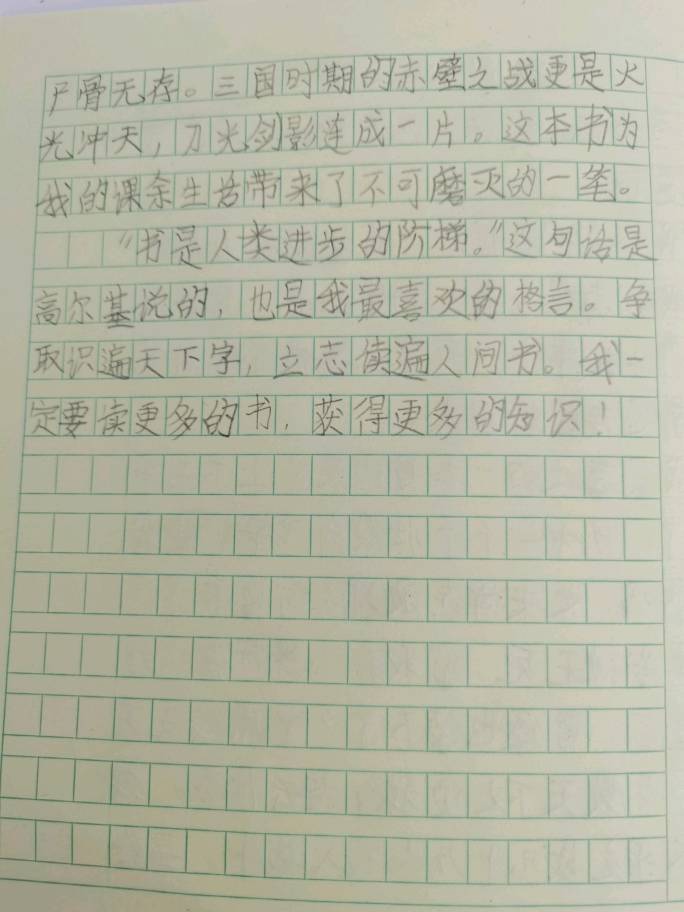 尸骨无存。三国时期的赤壁之战更是火
光冲天，刀光剑影连成一片。这本书为
我的课余生活带来了不可磨灭的一笔。
“书是人类进步的阶梯。”这句话是
高尔基说的，也是我最喜欢的格言。争
取识遍天下字，立志读遍人间书。我一
定要读更多的书，获得更多的知识！